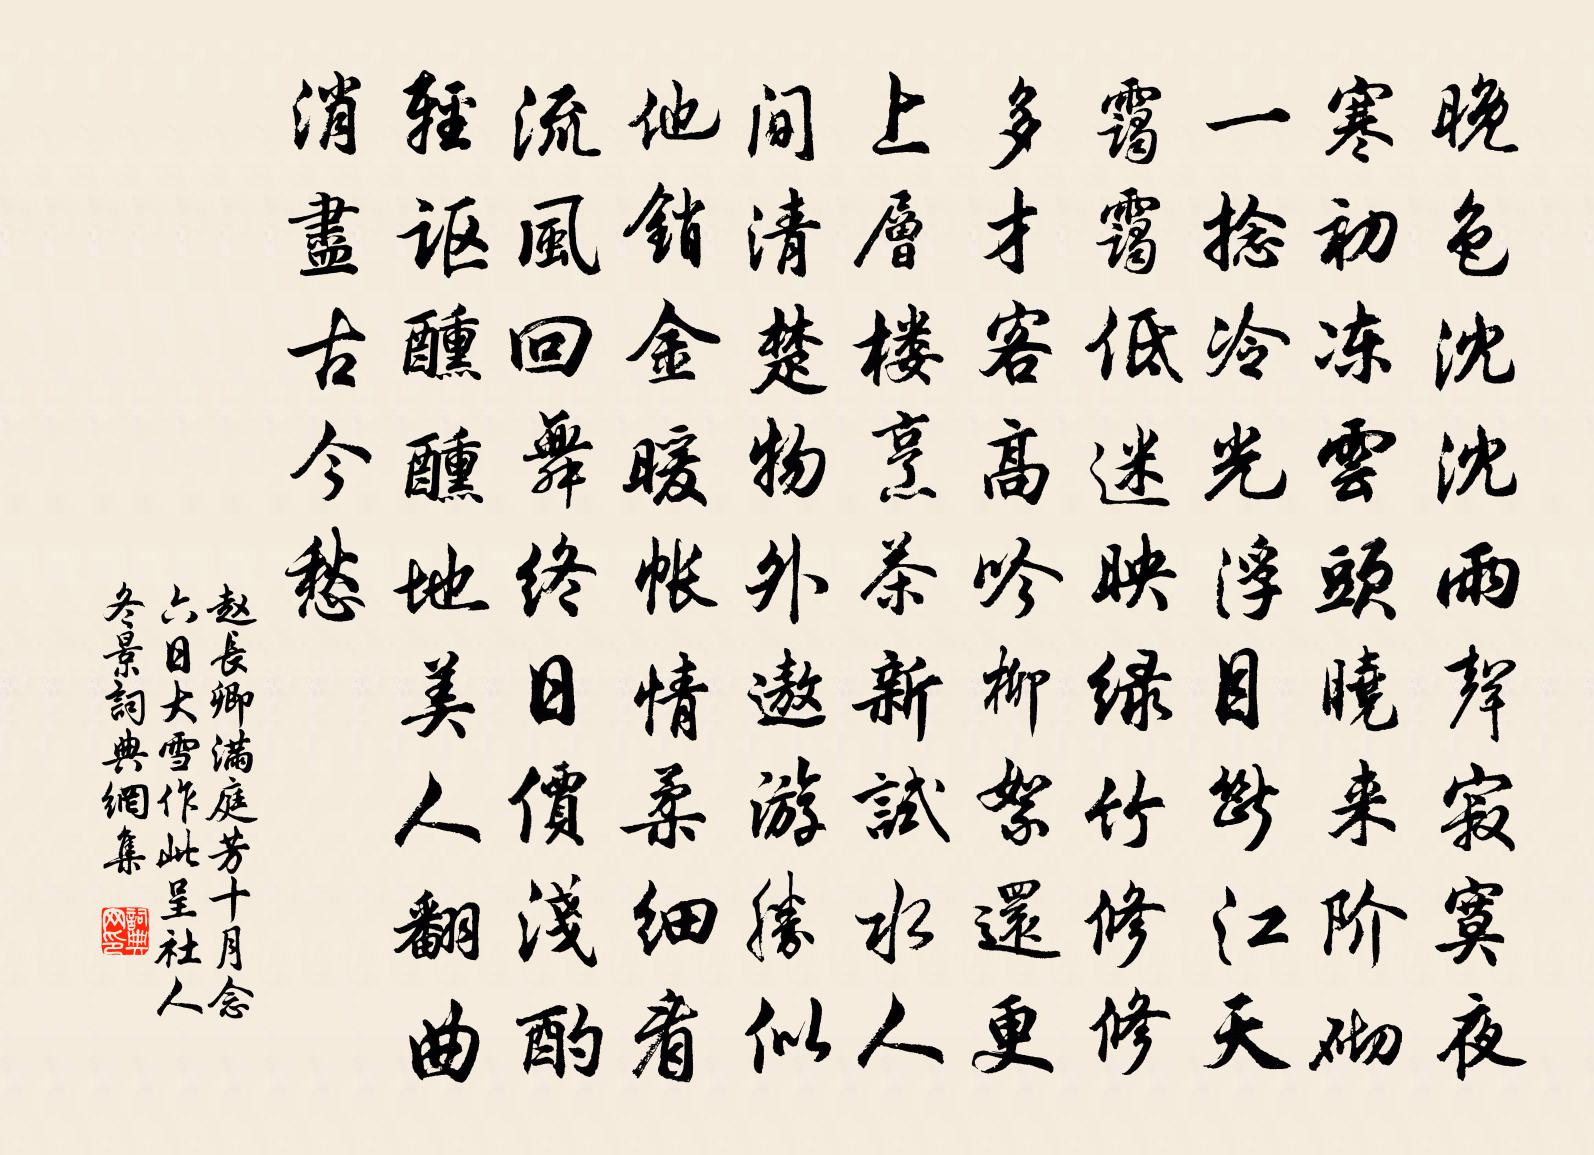 晚色沈沈雨聲寂寞夜
寒初冻雲頭曉来阶砌
一捻冷光浮目斷江天
靄靄低迷映绿竹修修
多才客高吟柳絮還更
上層楼烹茶新試水人
间清楚物外遨游勝似
他銷金暖帐情柔细看
流風回舞终日價淺酌
輕讴醺醺地美人翻曲
消盡古今愁
赵長卿满庭芳十月念
六日大雪作此呈社人
冬景詞典網集
詞典网印